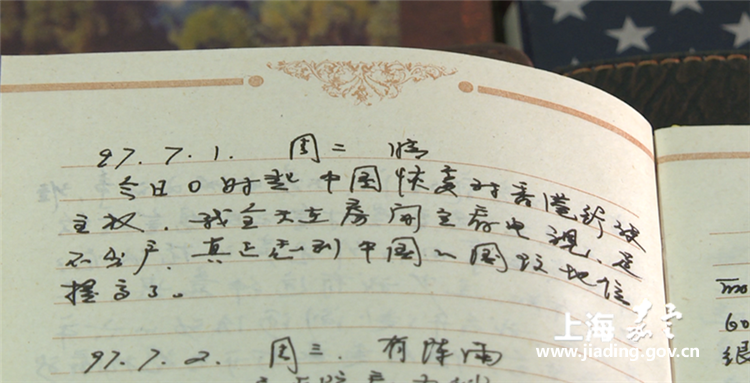 97.7.1. 周二 晴
今日0时起 中国恢复对香港行使
主权.我全天在房间里看电视.足
不出户.真正感到中国的国际地位
提高了。
97.7.2. 周三. 有阵雨
上海 嘉定
www.jiading.gov.cn